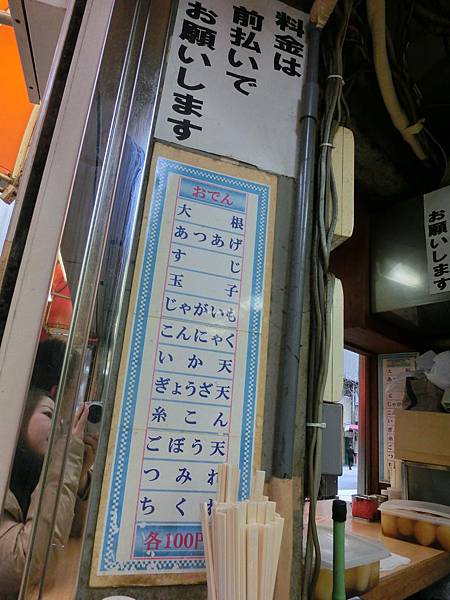 料金は
前払いで
お願いします
おでん
大根
あつあげ
すじ
玉子
じゃがいも
こんにゃく
いか天
ぎょうざ天
糸こん
ごぼう天
つみれ
ちく
各100円
お願いします